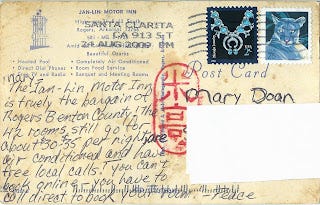 JAN-LIN MOTOR INN
Rogers, Arkansas
SANTA CLARITA
CA 913 5 T
21 AUG 2009 PM
• Heated Pool
• Completely Air Conditioned
• Direct Dial Phones
• Room Food Service
• TV and Radio
• Banquet and Meeting Rooms
Post Card
Mary-
The Jan-Lin Motor Inn
is truely the bargain of
Rogers Benton County. The
42 rooms still go for
about 30-35 per night, are
air conditioned and have
free local calls. You can't
book online - you have to
call direct to book your room. -Peace
Mary Doan